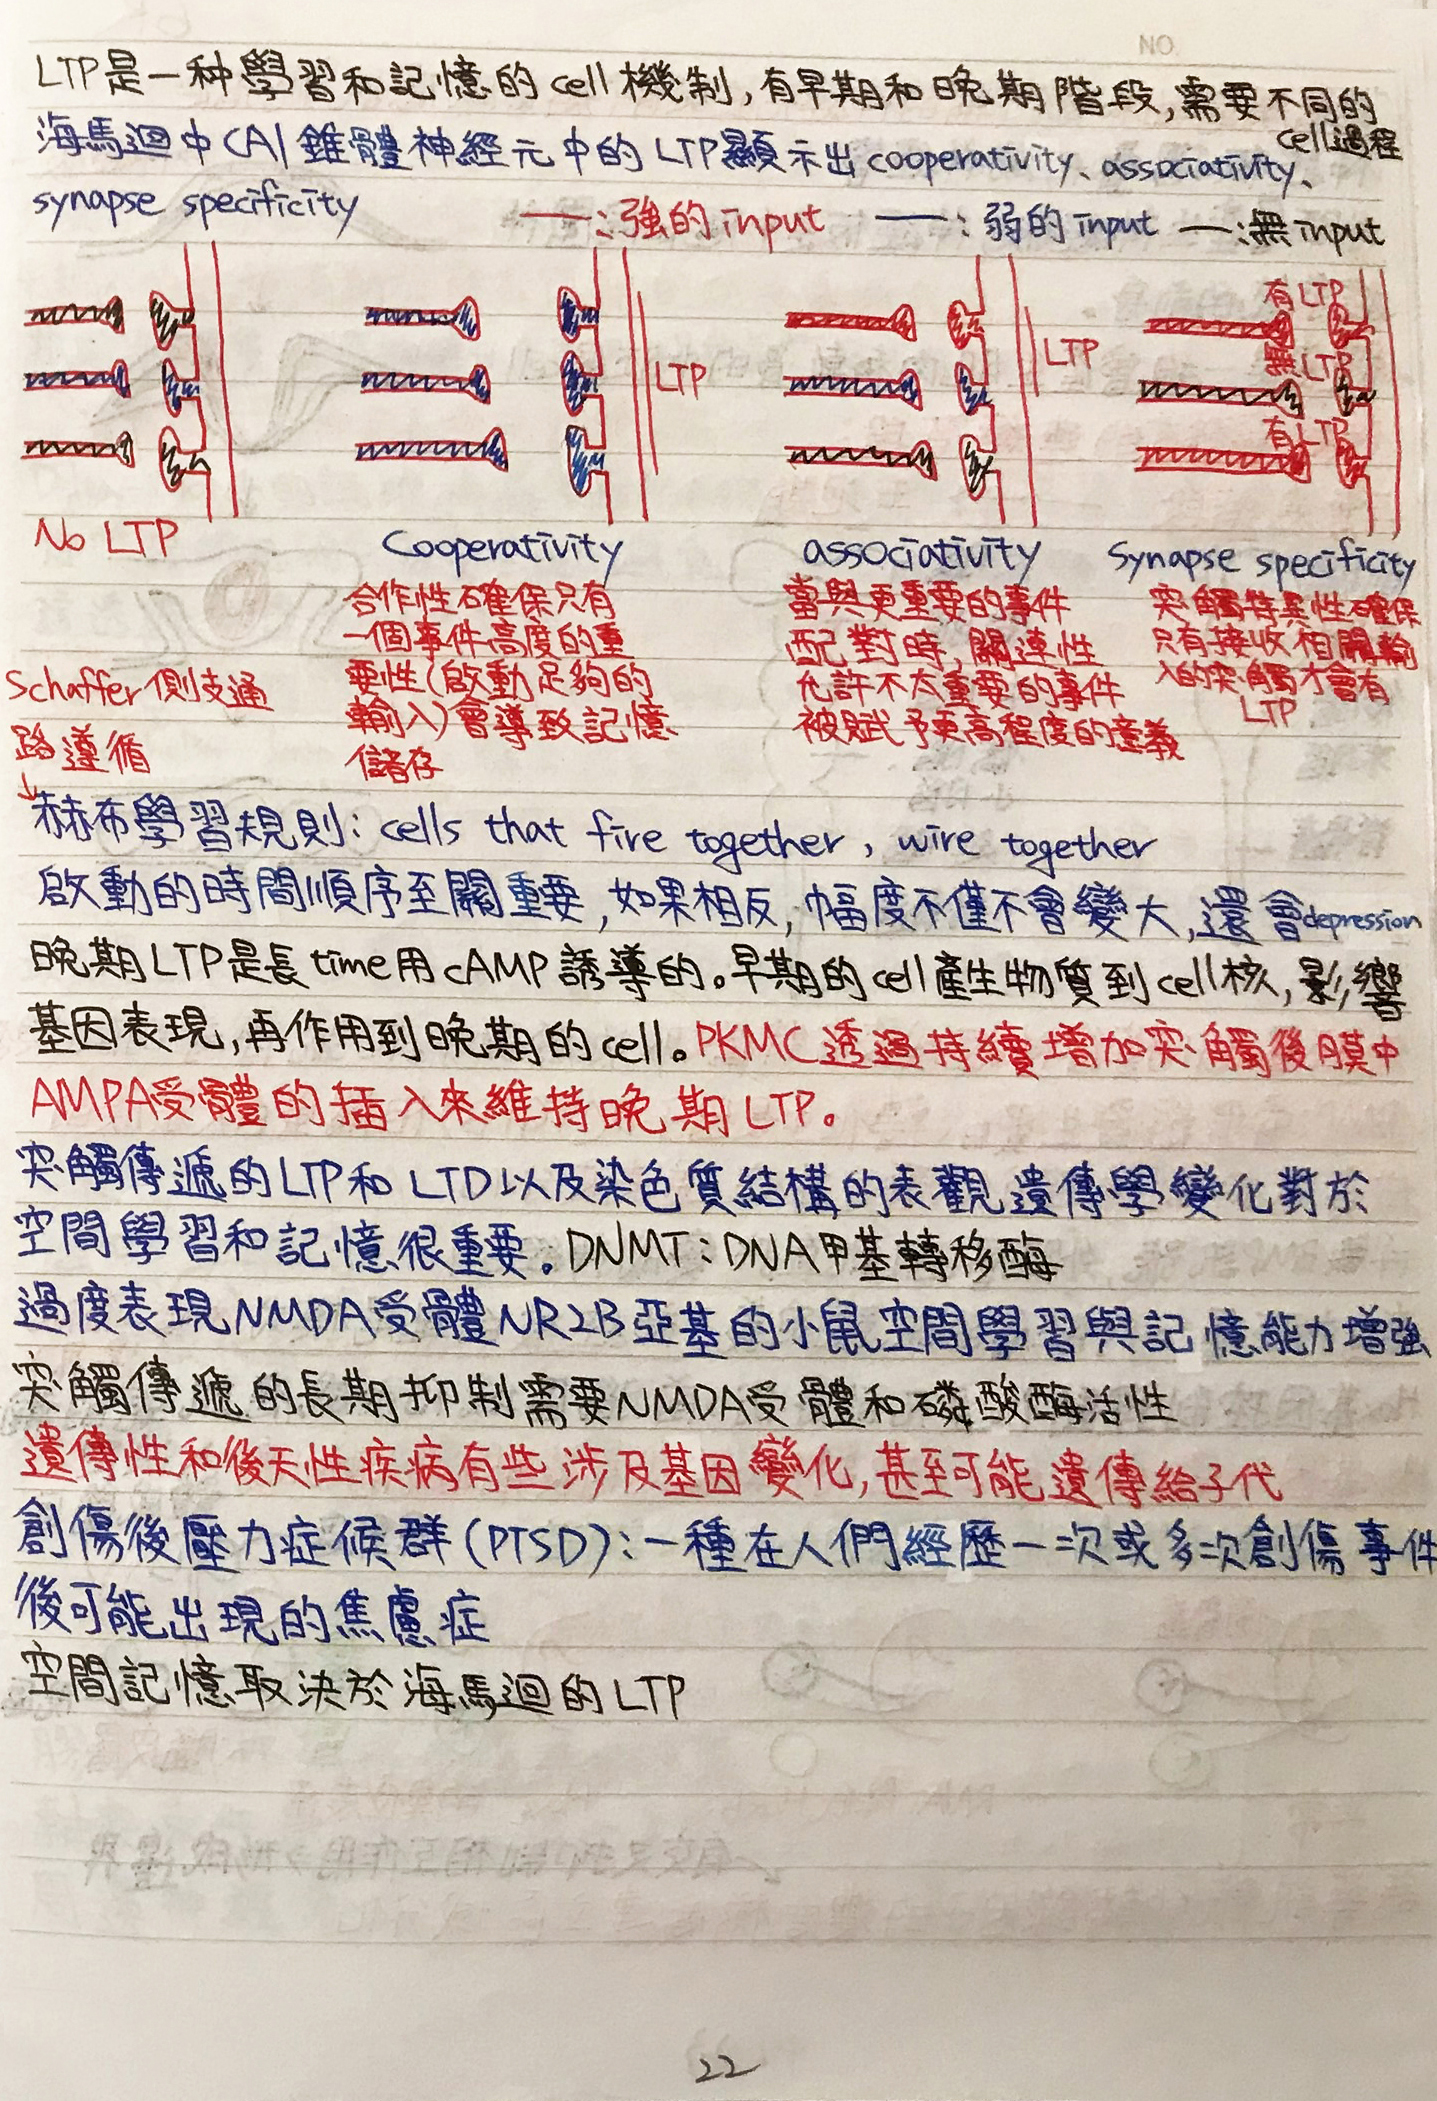 LTP是一种學習和記憶的cell機制,有早期和晚期階段,需要不同的
cell過程
海馬迴中CA1錐體神經元中的LTP顯示出cooperativity、associativity、
synapse specificity
——:強的input ——:弱的input —:無input
有LTP
無LTP
有LTP
LTP
LTP
No LTP
Cooperativity
associativity
Synapse specificity
合作性確保只有
一個事件高度的重
要性(啟動足夠的
輸入)會導致記憶
儲存
當與更重要的事件
配對時,關連性
允許不太重要的事件
被賦予更高程度的意義
突觸特異性確保
只有接收相關輸
入的突觸才會有
LTP
Schaffer側支通
路遵循
↓
赫布學習規則: cells that fire together, wire together
啟動的時間順序至關重要,如果相反,幅度不僅不會變大,還會depression
晚期LTP是長time用cAMP誘導的。早期的cell產生物質到cell核,影響
基因表現,再作用到晚期的cell。PKMC透過持續增加突觸後膜中
AMPA受體的插入來維持晚期LTP。
突觸傳遞的LTP和LTD以及染色質結構的表觀遺傳學變化對於
空間學習和記憶很重要。DNMT:DNA甲基轉移酶
過度表現NMDA受體NR2B亞基的小鼠空間學習與記憶能力增強
突觸傳遞的長期抑制需要NMDA受體和磷酸酶活性
遺傳性和後天性疾病有些涉及基因變化,甚至可能遺傳給子代
創傷後壓力症候群(PTSD):一種在人們經歷一次或多次創傷事件
後可能出現的焦慮症
空間記憶取決於海馬迴的LTP
22